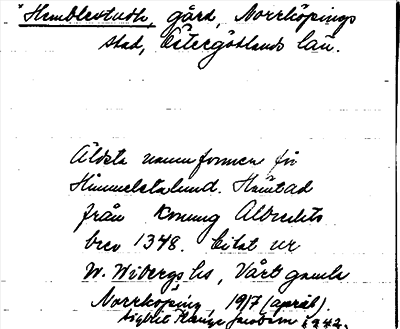 Humblestadh, gård, Norrköpings
stad, Östergötlands län.
Äldsta namnformen för
Himmelstalund. Hämtad
från Konung Albrekts
brev 1348. Citat ur
W. Wibergs hs, Vårt gamla
Norrköping 1917 (april)
Sigbrit Plænge Jacobson s 242.